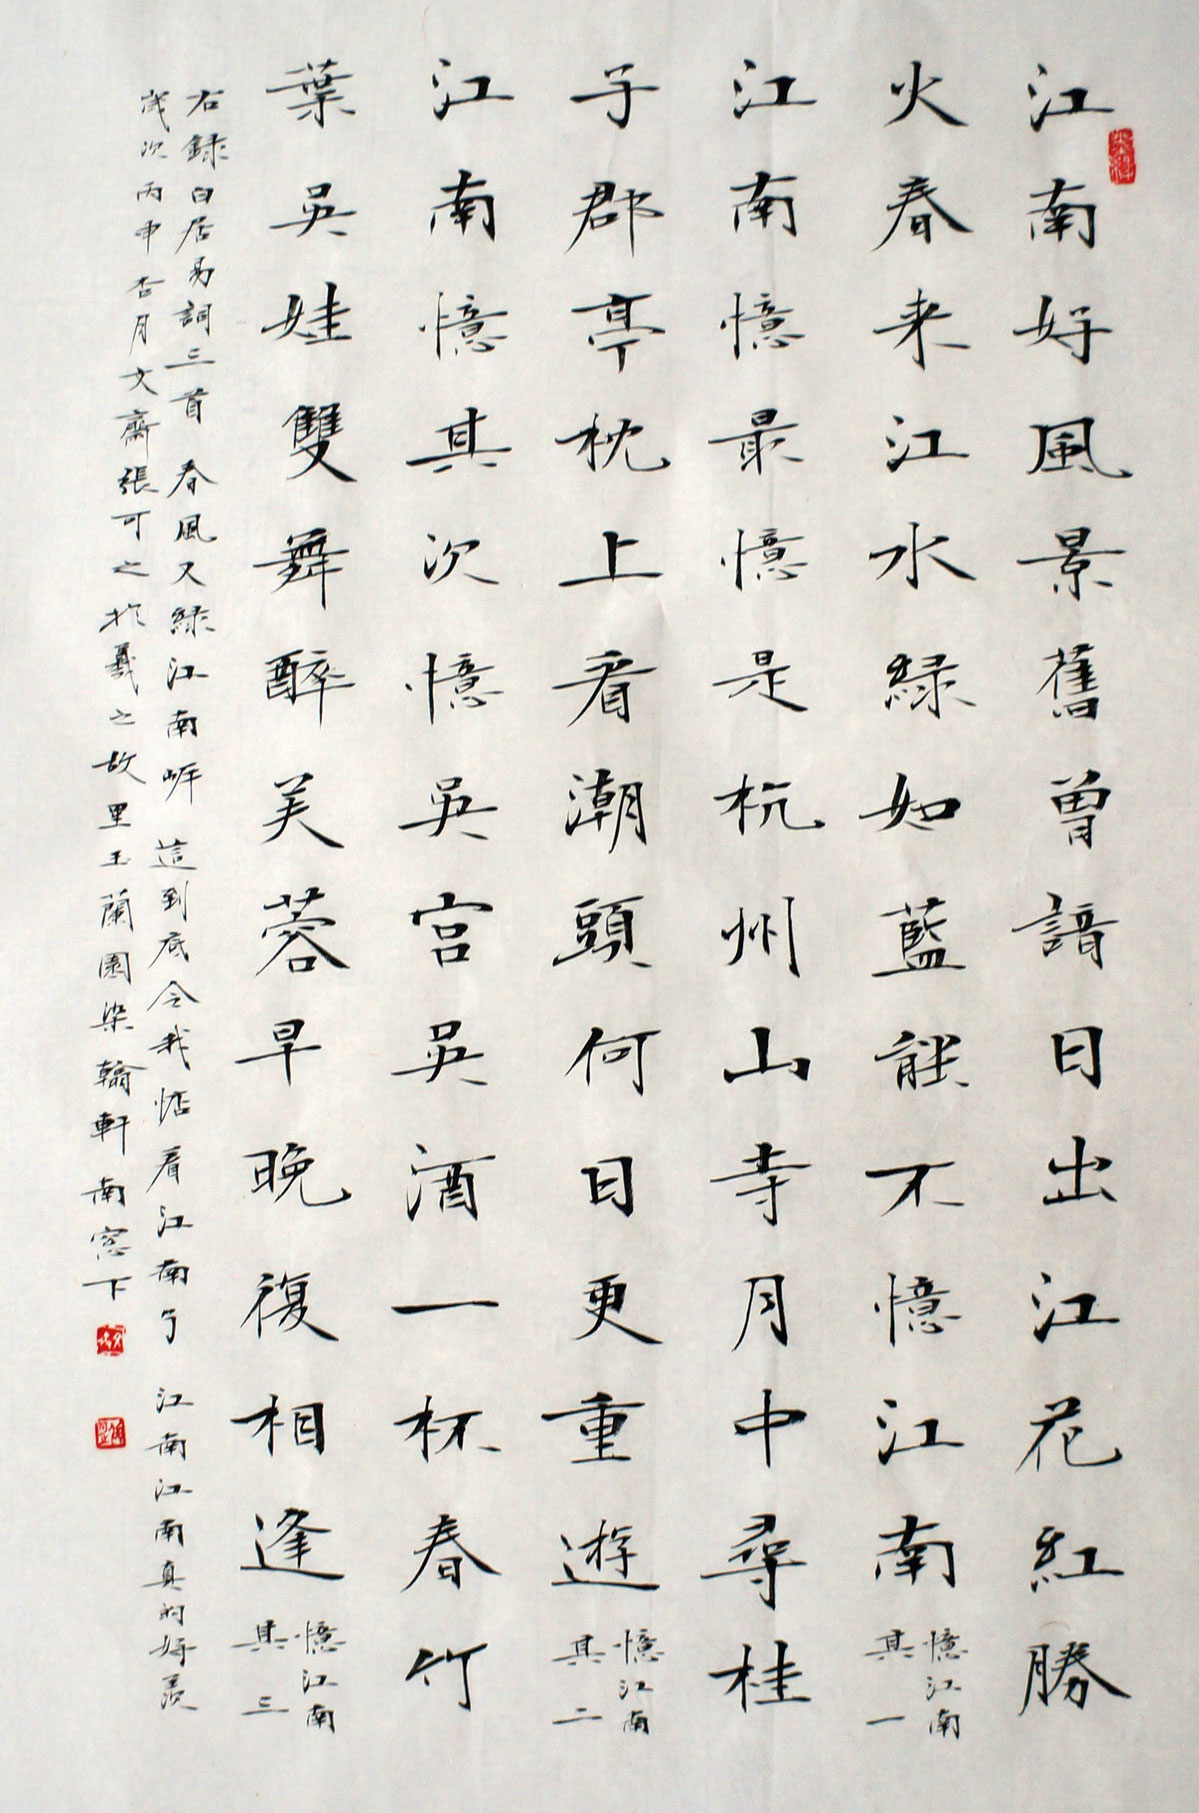 江南好風景舊曾諳日出江花紅勝
火春来江水緑如藍能不憶江南
憶江南
其一
江南憶最憶是杭州山寺月中尋桂
子郡亭枕上看潮頭何日更重遊
憶江南
其二
江南憶其次憶吳宮吳酒一杯春竹
葉吳娃雙舞醉芙蓉早晚復相逢
憶江南
其三
右録白居易詞三首 春風又緑江南岸 這到底令我惦着江南 江南江南真的好
歲次丙申杏月文齋張可之於羲之故里玉蘭園染翰軒南窓下